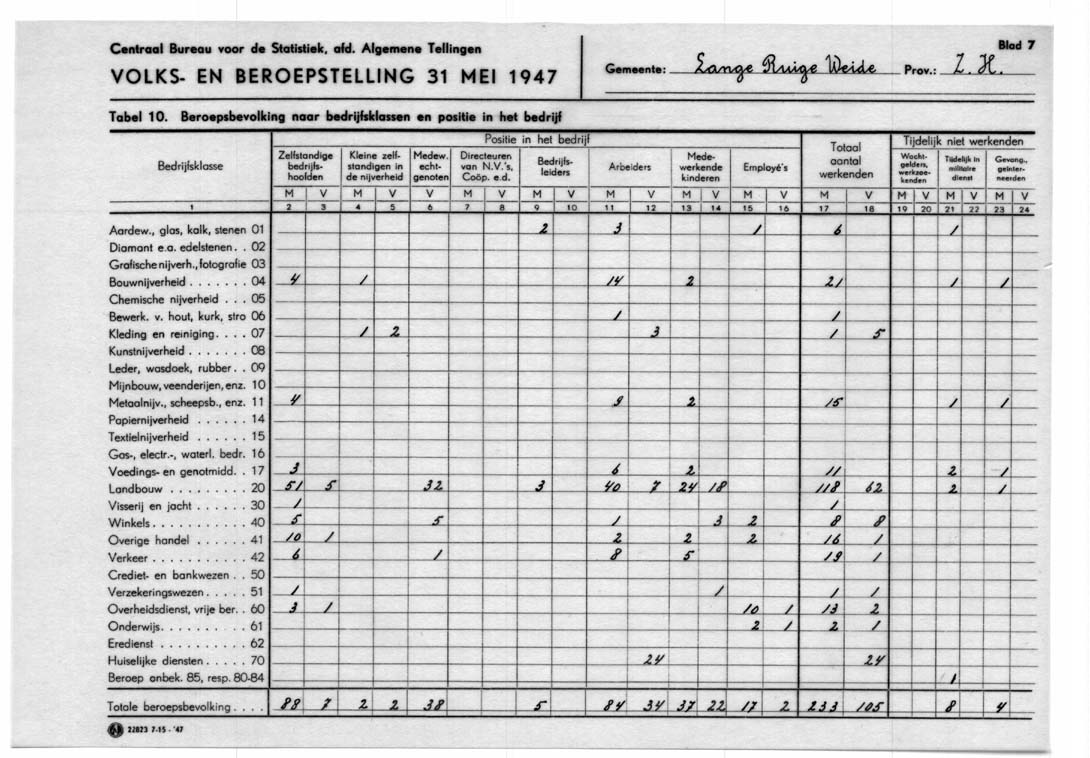 Centraal Bureau voor de Statistiek, afd. Algemene Tellingen
VOLKS- EN BEROEPSTELLING 31 MEI 1947
Gemeente: Lange Ruige Weide Prov.: Z. H.
Blad 7
Tabel 10. Beroepsbevolking naar bedrijfsklassen en positie in het bedrijf
Bedrijfsklasse
Positie in het bedrijf
Totaal aantal werkenden
Tijdelijk niet werkenden
Zelfstandige bedrijfs-hoofden
Kleine zelf-standigen in de nijverheid
Medew. echt-genoten
Directeuren van N.V.'s, Coöp. e.d.
Bedrijfs-leiders
Arbeiders
Mede-werkende kinderen
Employé's
Wacht-gelders, werkzoe-kenden
Tijdelijk in militaire dienst
Gevang., geïnter-neerden
M V M V V M V M V M V M V M V M V M V M V M V
1 2 3 4 5 6 7 8 9 10 11 12 13 14 15 16 17 18 19 20 21 22 23 24
Aardew., glas, kalk, stenen 01 2 3 1 6 1
Diamant e.a. edelstenen. . 02
Grafische nijverh., fotografie 03
Bouwnijverheid . . . . . . . 04 4 1 14 2 21 1 1
Chemische nijverheid . . . 05
Bewerk. v. hout, kurk, stro 06 1 1
Kleding en reiniging. . . . 07 1 2 3 1 5
Kunstnijverheid . . . . . . . 08
Leder, wasdoek, rubber. . 09
Mijnbouw, veenderijen, enz. 10
Metaalnijv., scheepsb., enz. 11 4 9 2 15 1 1
Papiernijverheid . . . . . . 14
Textielnijverheid . . . . . . 15
Gas-, electr.-, waterl. bedr. 16
Voedings- en genotmidd. . 17 3 6 2 11 2 1
Landbouw . . . . . . . . . 20 51 5 32 3 40 7 24 18 118 62 2 1
Visserij en jacht . . . . . . 30 1 1
Winkels . . . . . . . . . . . 40 5 5 1 3 2 8 8
Overige handel . . . . . . 41 10 1 2 2 2 16 1
Verkeer . . . . . . . . . . . 42 6 1 8 5 19 1
Crediet- en bankwezen . . 50
Verzekeringswezen. . . . . 51 1 1 1 1
Overheidsdienst, vrije ber. . 60 3 1 10 1 13 2
Onderwijs. . . . . . . . . . 61 2 1 2 1
Eredienst . . . . . . . . . . 62
Huiselijke diensten . . . . . 70 24 24
Beroep onbek. 85, resp. 80-84 1
Totale beroepsbevolking . . . . 88 7 2 2 38 5 84 34 37 22 17 2 233 105 8 4
22823 7-15 - '47